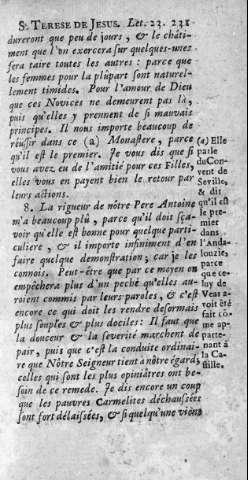 S. TERESE DE JESUS. Let. 23. 231
dureront que peu de jours, & le châti-
ment que l'on exercera sur quelques-unes
fera taire toutes les autres : parce que
les femmes pour la plûpart sont naturel-
lement timides. Pour l'amour de Dieu
que ces Novices ne demeurent pas là,
puis qu'elles y prennent de si mauvais
principes. Il nous importe beaucoup de
reüssir dans ce (a) Monastere, parce
qu'il est le premier. Je vous dis que si
vous avez eu de l'amitié pour ces Filles,
elles vous en payent bien le retour par
leurs actions.
8. La rigueur de nôtre Pere Antoine
m'a beaucoup plû, parce qu'il doit sça-
voir qu'elle est bonne pour quelque parti-
culiere, & il importe infiniment d'en
faire quelque demonstration; car je les
connois. Peut-être que par ce moyen on
empêchera plus d'un peché qu'elles au-
roient commis par leurs paroles, & c'est
encore ce qui doit les rendre desormais
plus souples & plus dociles: Il faut que
la douceur & la severité marchent de
pair, puis que c'est la conduite ordinai-
re que Nôtre Seigneur tient à nôtre égard;
celles qui sont les plus opiniâtres ont be-
soin de ce remede. Je dis encore un coup
que les pauvres Carmelites déchaussées
sont fort délaissées, & si quelqu'une vient
(a) Elle
parle
du Con-
vent de
Seville,
& dit
qu'il est
le pre-
mier
dans
l'Anda-
louzie,
parce
que ce-
luy de
Veas a-
voit été
fait cô-
me ap-
parte-
nant à
la Ca-
stille.